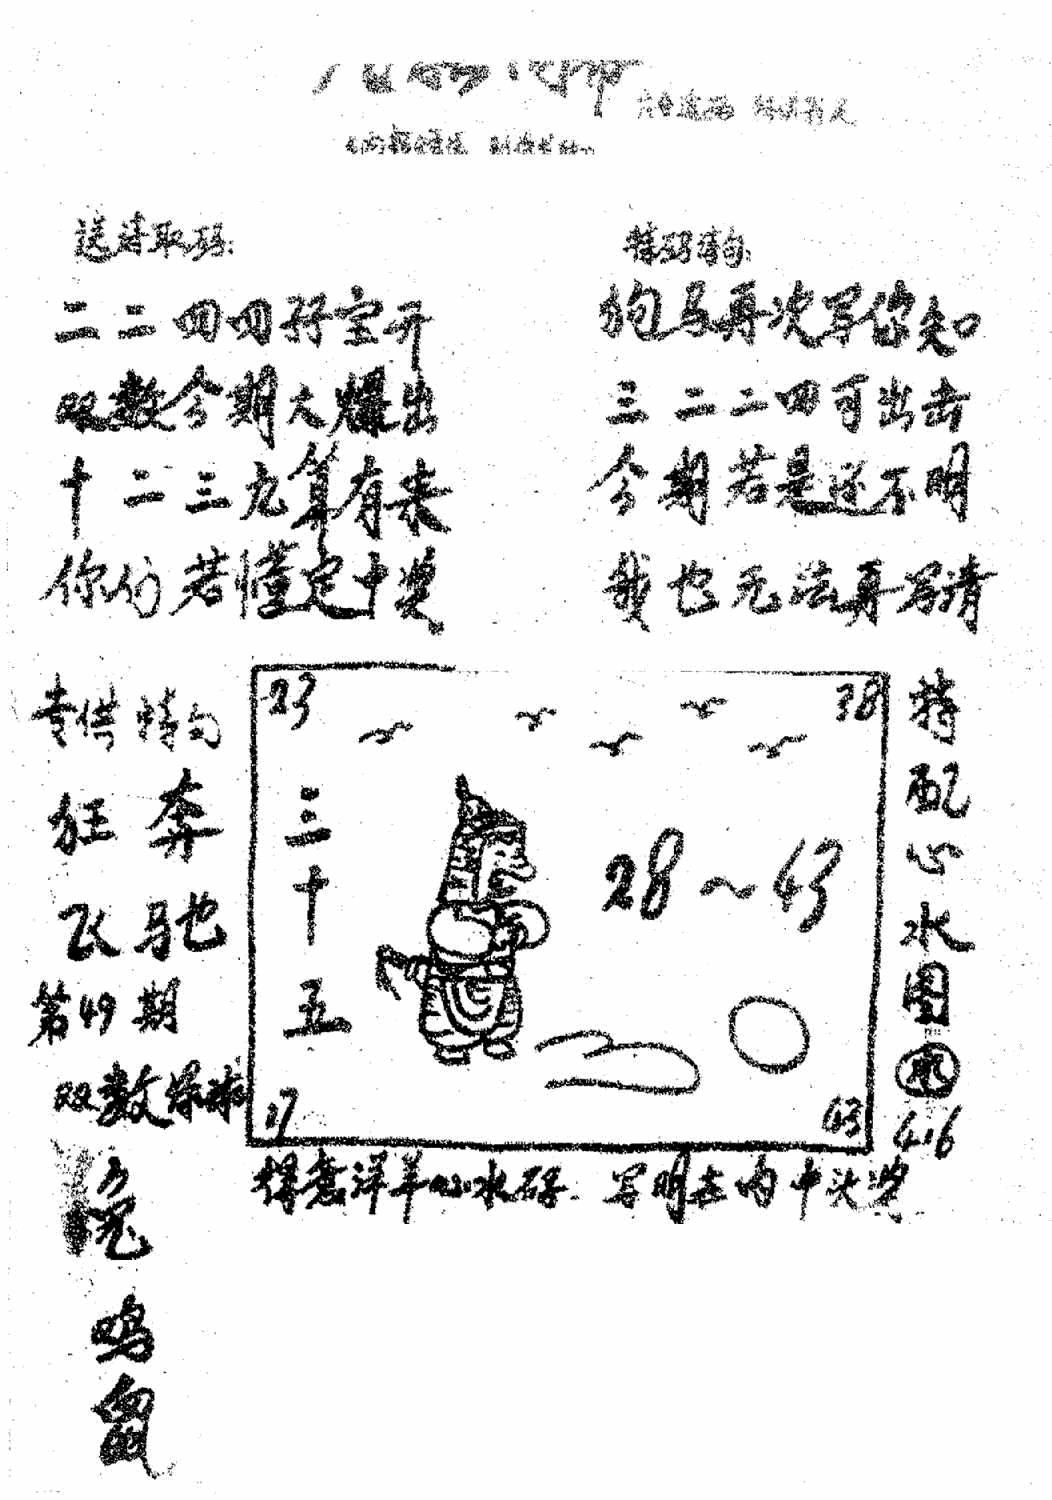 送诗取码:
二二四四孖宝开
双数今期大爆出
十二三九算有来
你们若懂定中奖
特码诗句:
狗马再次写你知
三二二四可出击
今期若是还不明
我也无法再写清
专供特句
狂奔
飞驰
第49期
双数绿球
兔
鸡
鼠
23
38
三十五
28～43
17
43
特配心水图
416
得意洋羊心水码 写明在内中头奖